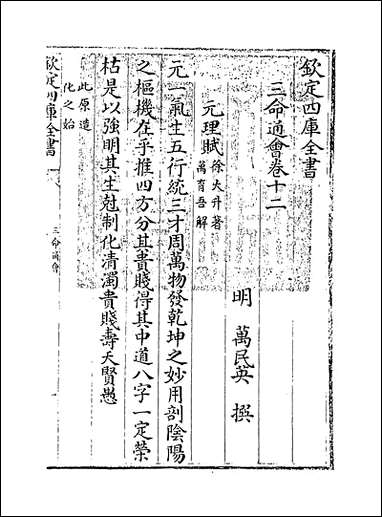 欽定四庫全書
三命通會卷十二
明 萬民英 撰
元理賦
徐大升著
萬育吾解
元一氣生五行統三才周萬物發乾坤之妙用剖陰陽
之樞機在乎推四方分其貴賤得其中道八字一定榮
枯是以強明其生尅制化清濁貴賤壽夭賢愚
此原造
化之始
欽定四庫全書
三命通會